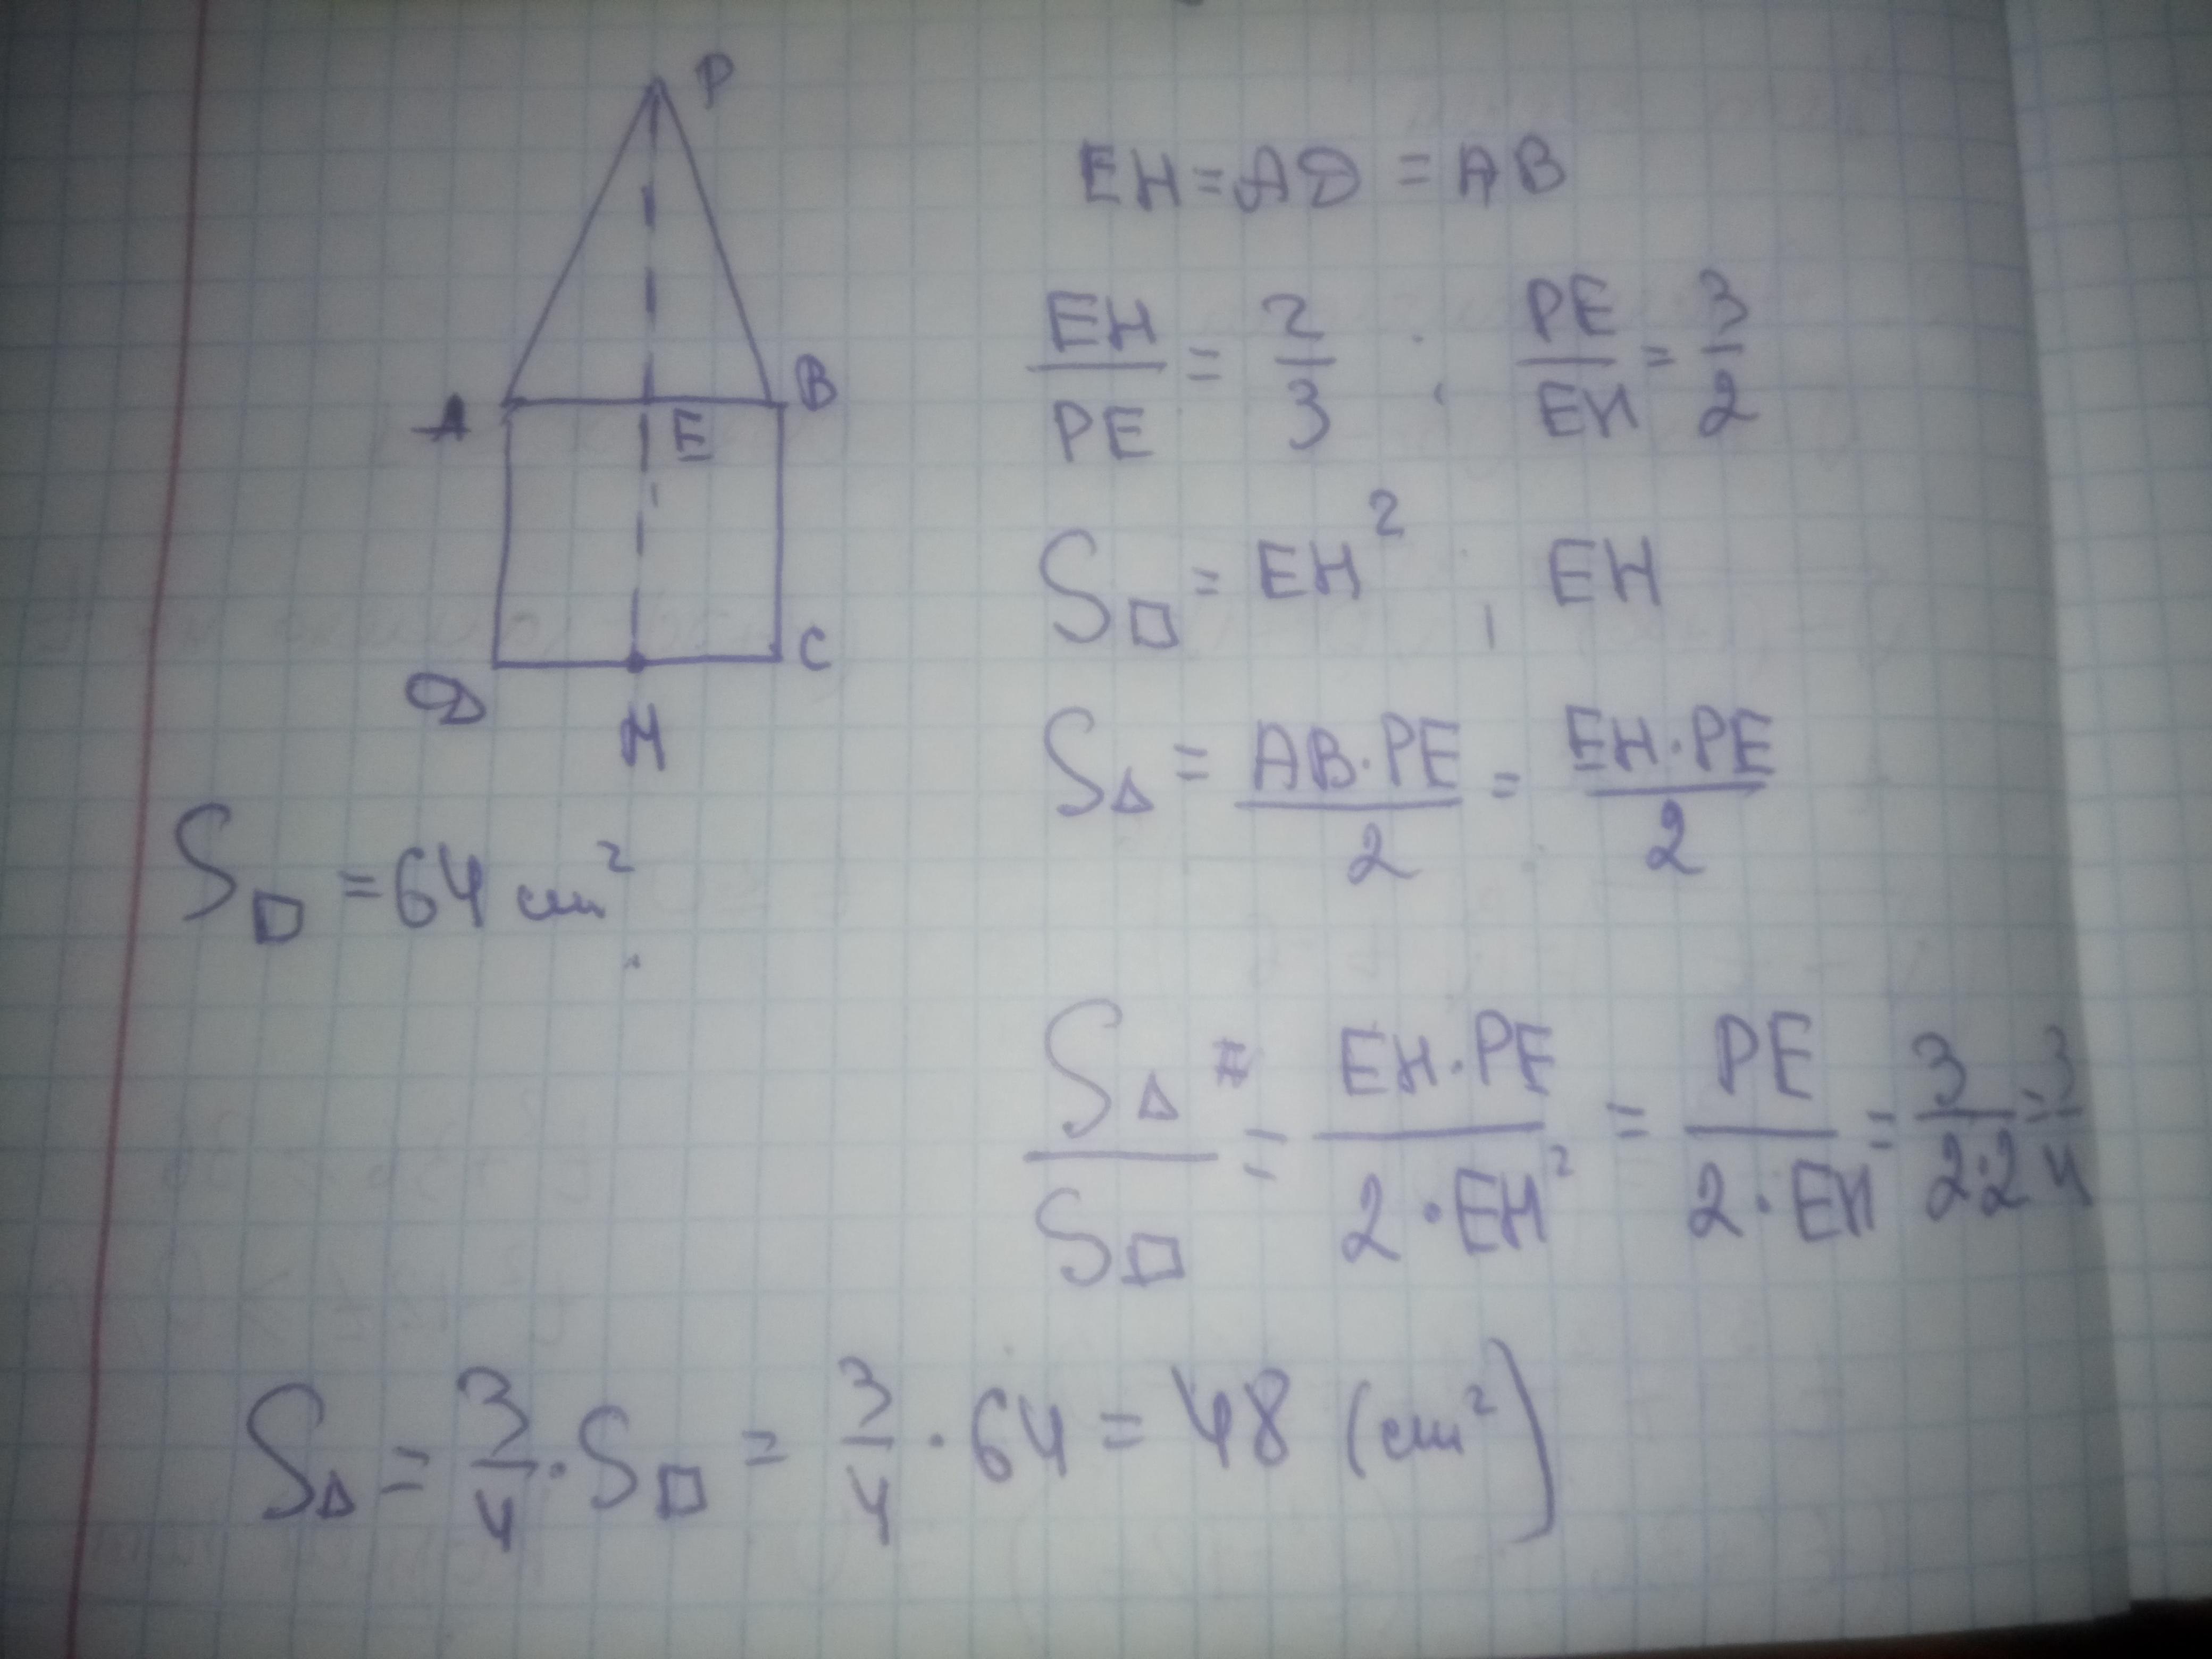 P
A
E
B
D
H
C
S□ = 64 cm²
EH = AD = AB
EH/PE = 2/3 ; PE/EH = 3/2
S□ = EH² , EH
S△ = AB·PE/2 = EH·PE/2
S△/S□ = EH·PE/2·EH² = PE/2·EH = 3/2·2 = 3/4
S△ = 3/4 · S□ = 3/4 · 64 = 48 (cm²)